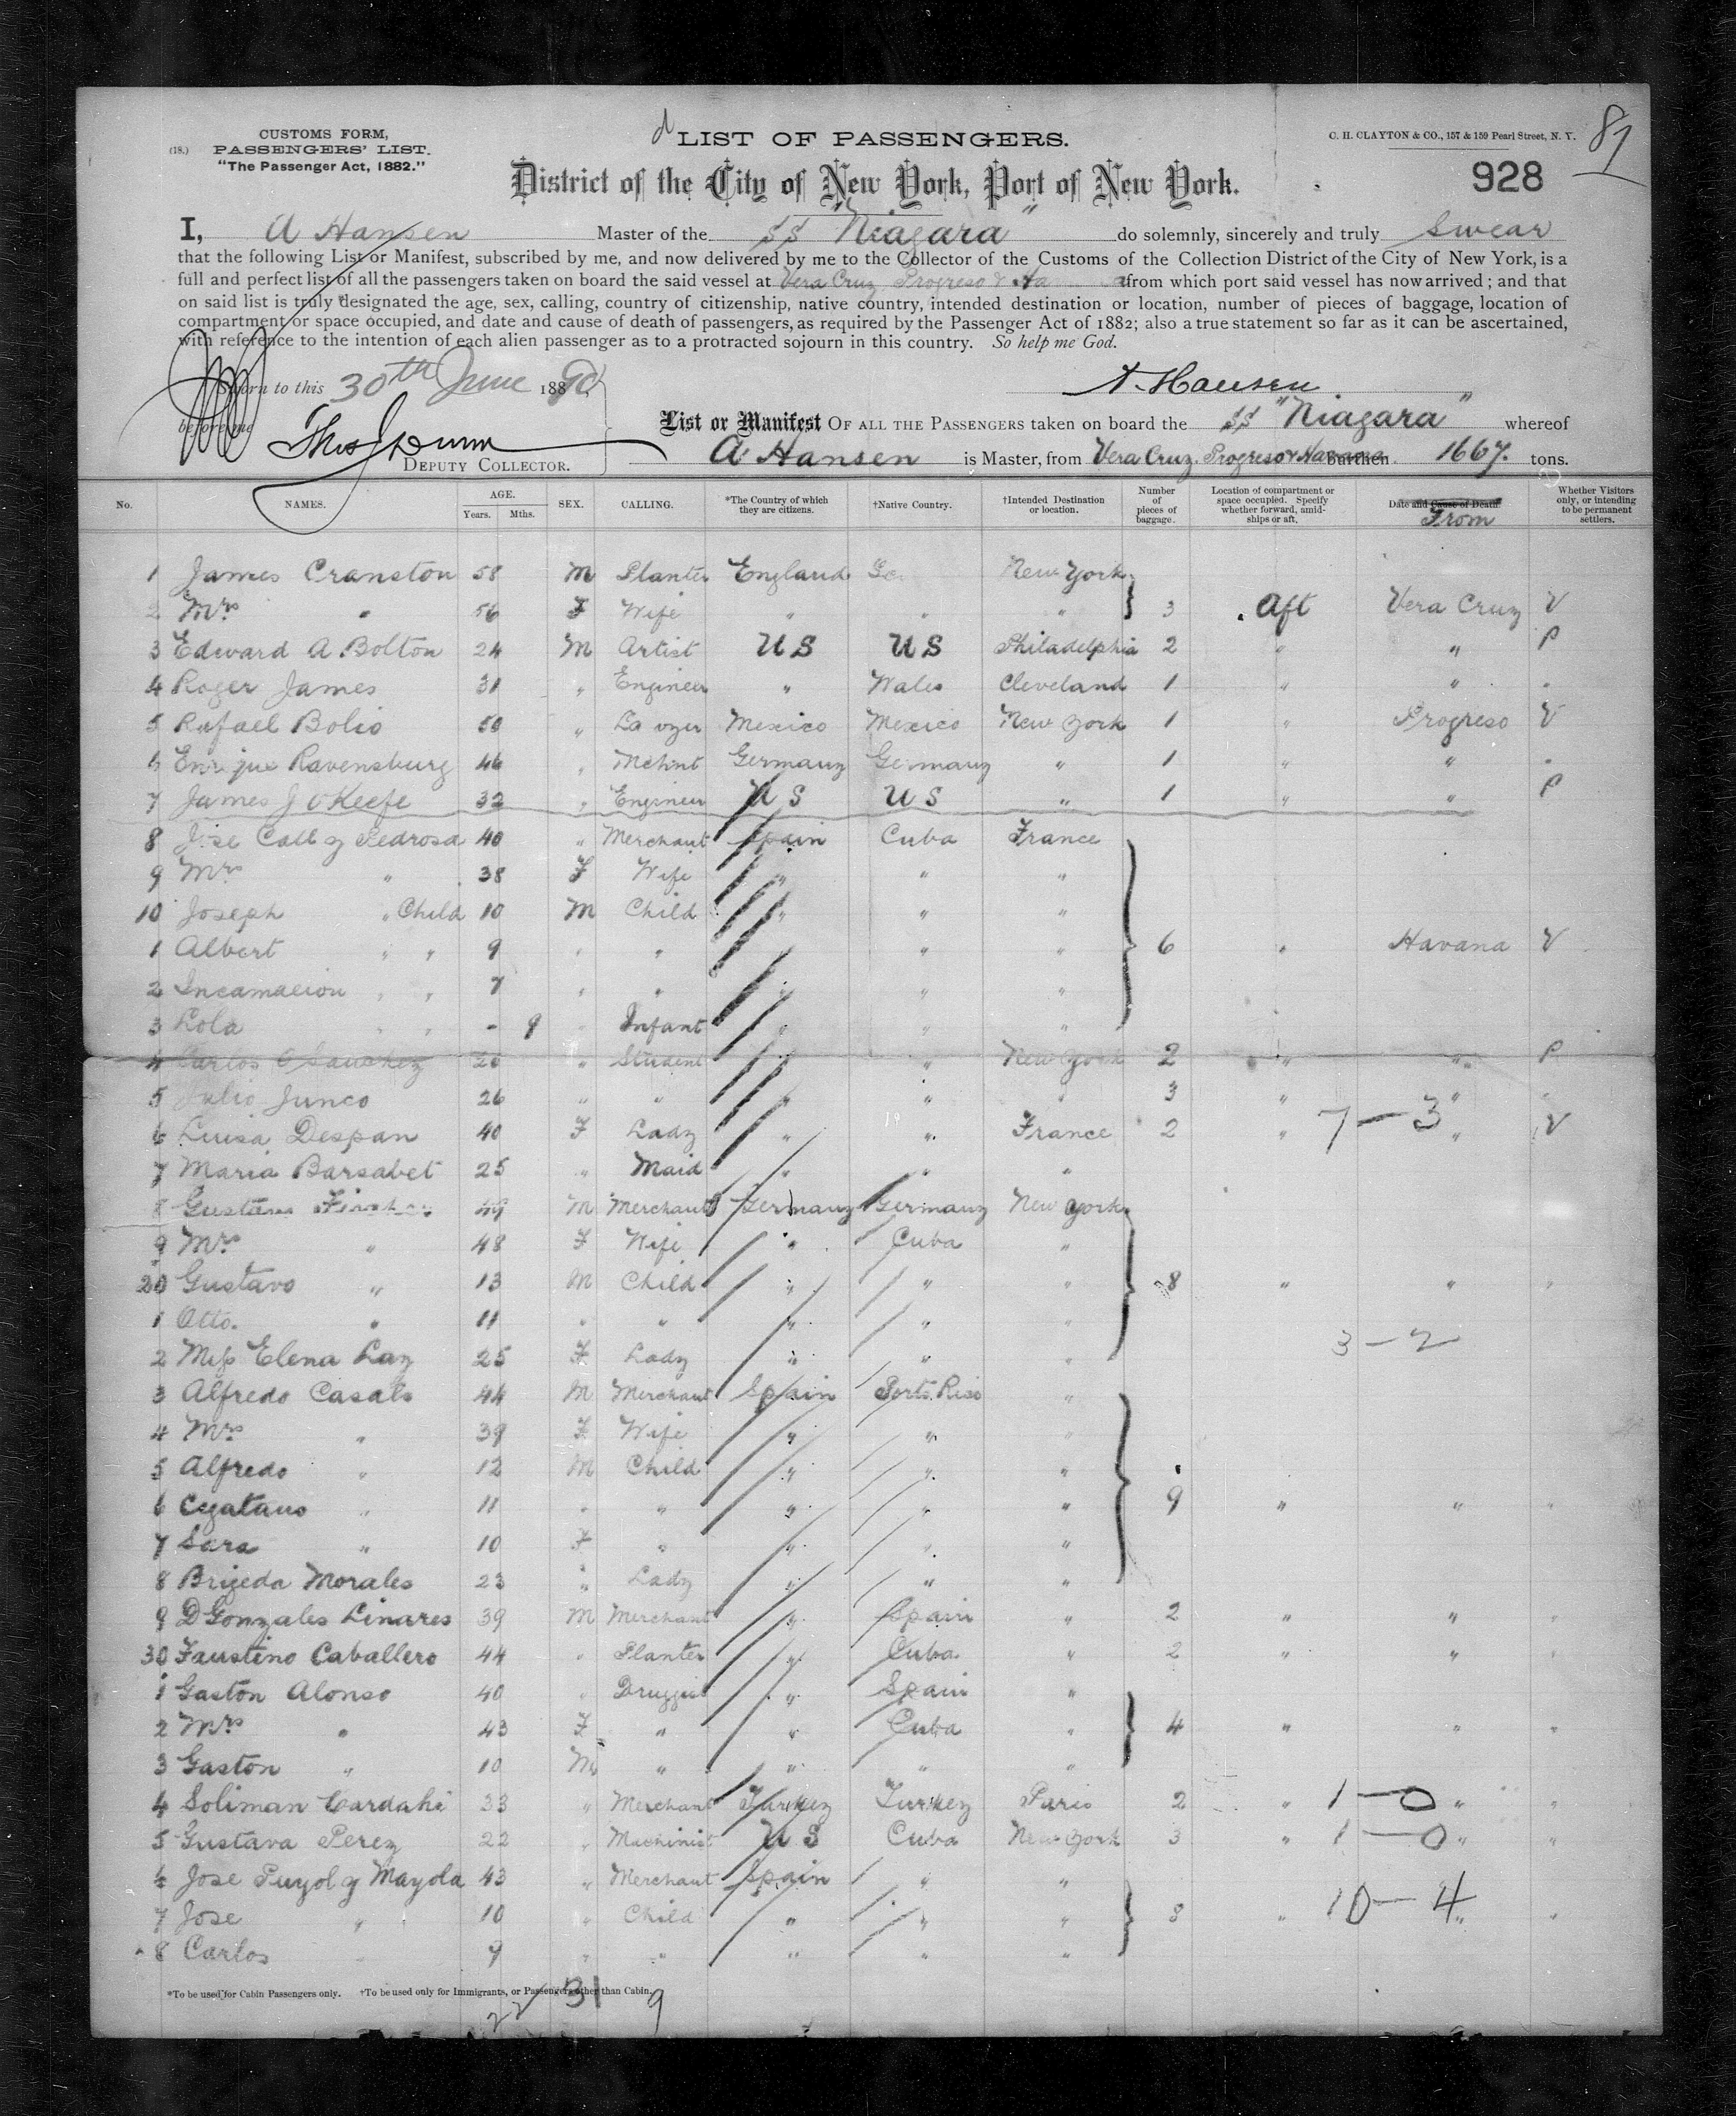 81
CUSTOMS FORM,
(18.) PASSENGERS' LIST.
"The Passenger Act, 1882."
LIST OF PASSENGERS.
C. H. CLAYTON & CO., 157 & 159 Pearl Street, N. Y.
District of the City of New York, Port of New York.
928
I, A Hansen Master of the SS "Niagara" do solemnly, sincerely and truly swear
that the following List or Manifest, subscribed by me, and now delivered by me to the Collector of the Customs of the Collection District of the City of New York, is a
full and perfect list of all the passengers taken on board the said vessel at Vera Cruz Progreso & from which port said vessel has now arrived; and that
on said list is truly designated the age, sex, calling, country of citizenship, native country, intended destination or location, number of pieces of baggage, location of
compartment or space occupied, and date and cause of death of passengers, as required by the Passenger Act of 1882; also a true statement so far as it can be ascertained,
with reference to the intention of each alien passenger as to a protracted sojourn in this country. So help me God.
Sworn to this 30th June 1890
A. Hansen
before me
Thos J Dunn
DEPUTY COLLECTOR.
List or Manifest OF ALL THE PASSENGERS taken on board the SS "Niagara" whereof
A Hansen is Master, from Vera Cruz. Progreso & Havana burthen 1667. tons.
No. NAMES. AGE. Years. Mths. SEX. CALLING. *The Country of which they are citizens. †Native Country. †Intended Destination or location. Number of pieces of baggage. Location of compartment or space occupied. Specify whether forward, amidships or aft. Date and Cause of Death. From Whether Visitors only, or intending to be permanent settlers.
1 James Cranston 58 M Planter England New York
2 Mrs " 56 F Wife " " " 3 Aft Vera Cruz V
3 Edward A Bolton 24 M Artist U S U S Philadelphia 2 " " P
4 Roger James 31 " Engineer " Wales Cleveland 1 " " "
5 Rafael Bolio 50 " Lawyer Mexico Mexico New York 1 " Progreso V
6 Enrique Ravensburg 46 " Mchnt Germany Germany " 1 " " "
7 James J O'Keefe 32 " Engineer U S U S " 1 " " P
8 Jose Call y Pedrosa 40 " Merchant Spain Cuba France
9 Mrs " 38 F Wife " " "
10 Joseph " Child 10 M Child " " "
1 Albert " " 9 " " " " " 6 " Havana V
2 Incarnacion " " 7 " " " " "
3 Lola " " - 9 " Infant " " "
4 Carlos Sanchez " Student " " New York 2 " " P
5 Julio Junco 26 " " " " " 3 " " "
6 Luisa Despan 40 F Lady " " France 2 " 7-3 " V
7 Maria Barsabet 25 " Maid " " "
8 Gustavo 49 M Merchant Germany Germany New York
9 Mrs " 48 F Wife " Cuba "
20 Gustavo " 13 M Child " " " 8 " " "
1 Otto " 11 " " " " "
3-2
2 Miss Elena Lay 25 F Lady " " "
3 Alfredo Casals 44 M Merchant Spain Porto Rico "
4 Mrs " 39 F Wife " " "
5 Alfredo " 12 M Child " " "
6 Cyatano " 11 " " " " " 9 " " "
7 Sara " 10 F " " " "
8 Brigeda Morales 23 " Lady " " "
9 D Gonzales Linares 39 M Merchant " Spain " 2 " " "
30 Faustino Caballero 44 " Planter " Cuba " 2 " " "
1 Gaston Alonso 40 " Druggist " Spain "
2 Mrs " 43 F " " Cuba " 4 " " "
3 Gaston " 10 M " " " "
4 Soliman Cardahi 33 " Merchant Turkey Turkey Paris 2 " 1-0 " "
5 Gustava Perez 22 " Machinist U S Cuba New York 3 " 1-0 " "
6 Jose Puyol y Mayola 43 " Merchant Spain " "
7 Jose " 10 " Child " " " 3 " 10-4 " "
8 Carlos 9 " " " " "
*To be used for Cabin Passengers only. †To be used only for Immigrants, or Passengers other than Cabin.
22 31 9